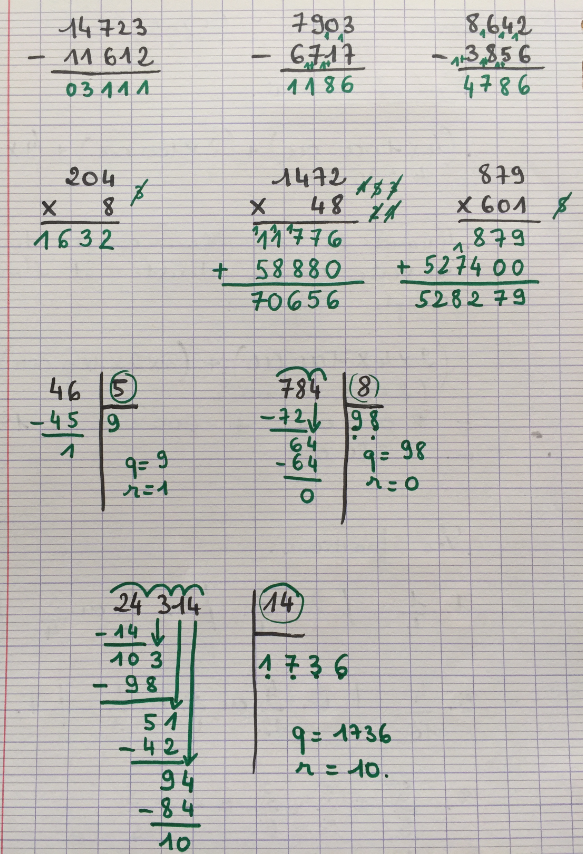 14723 7903 8642
- 11612 - 6717 - 3856
03111 1186 4786
204 1472 879
x 8 x 48 x 601
1632 11776 879
+ 58880 + 527400
70656 528279
46 5 784 8
- 45 9 - 72 98
1 64
q = 9 - 64 q = 98
r = 1 0 r = 0
24 314 14
- 14
103 1736
- 98
51
- 42 q = 1736
94 r = 10.
- 84
10